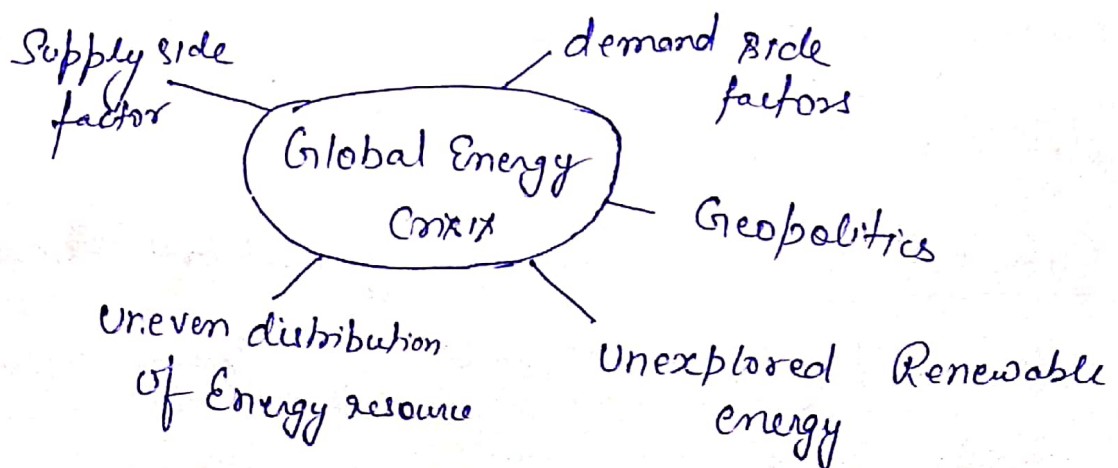 Supply side
factor
demand side
factors
Global Energy
Crisis
Geopolitics
Uneven distribution
of Energy resource
Unexplored Renewable
energy